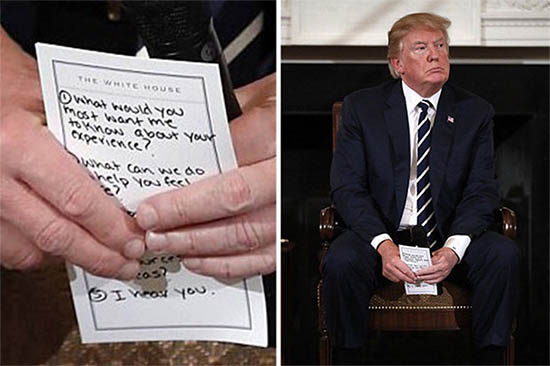 THE WHITE HOUSE
① What would you
most want me
to know about your
experience?
What can we do
help you feel
e?
urces
eas?
⑤ I hear you.